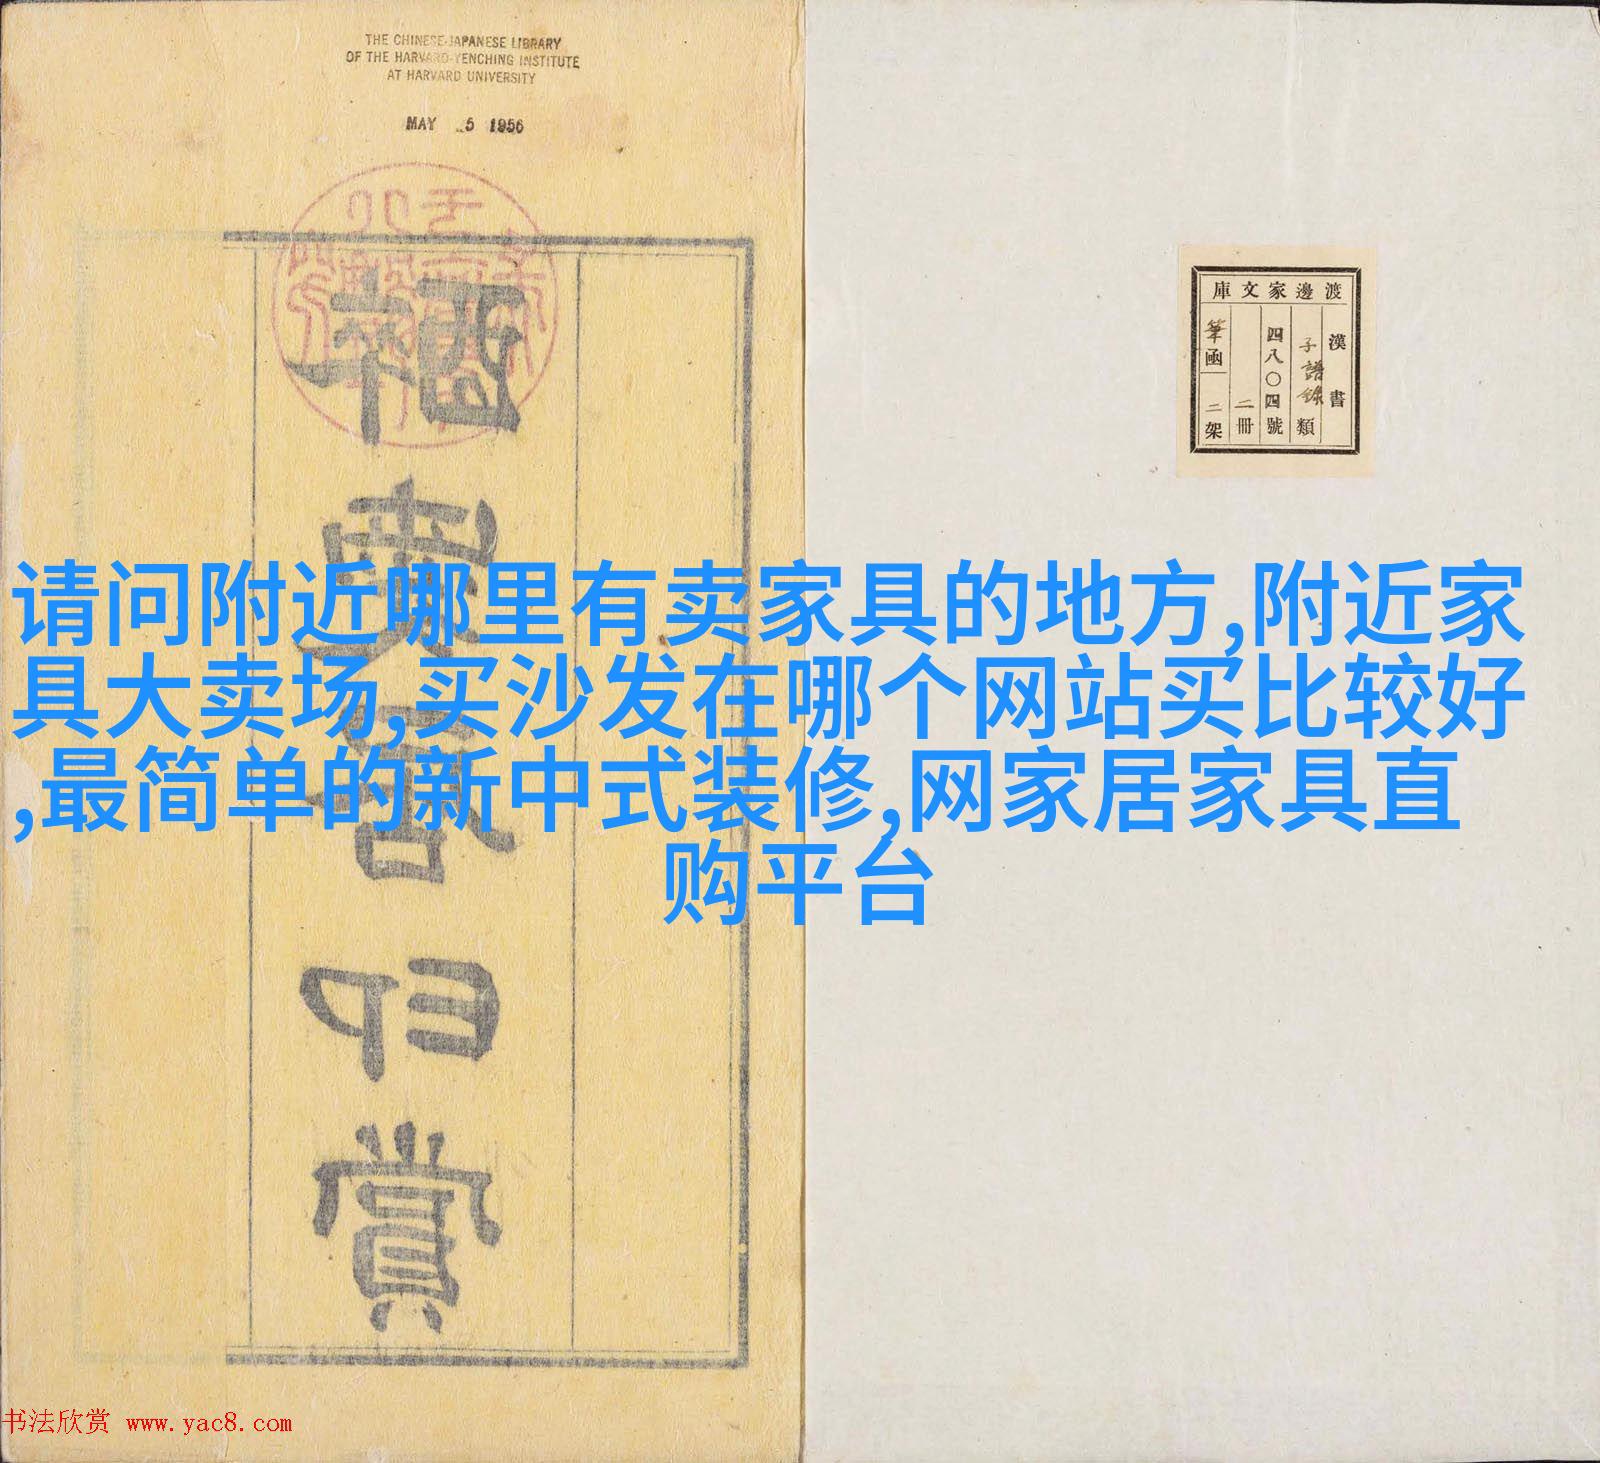 THE CHINESE-JAPANESE LIBRARY
OF THE HARVARD-YENCHING INSTITUTE
AT HARVARD UNIVERSITY
MAY 5 1956
渡邊家文庫
漢書
子語錄類
四八〇四號
二冊
筆函二架
请问附近哪里有卖家具的地方,附近家
具大卖场,买沙发在哪个网站买比较好
,最简单的新中式装修,网家居家具直
购平台
賞
书法欣赏 www.yac8.com